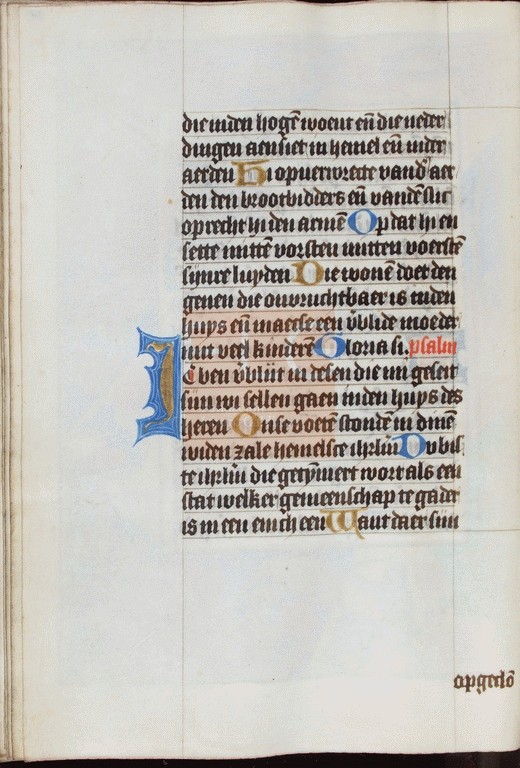 die inden hogē woent eñ die neder
dingen aensiet in hemel eñ inder
aerden Hi opuerwecte vand' aer
den den brootbidders eñ vandē slic
oprecht hi den armē Op dat hi en
sette mittē vorsten mitten voerstē
sijnre luyden Die wonē doet den
genen die onvruchtbaer is inden
huys eñ maectse een vblide moeder
mit veel kinderē Gloria si. psalm
Ic ben vblijt in desen die mi geseit
sijn wi sellen gaen inden huys des
heren Onse voetē stondē in dinē
widen zale hemelsce ihrlm Du bis
te ihrlm die getymert wort als een
stat welker gemeenschap te gader
is in een einich een Want daer sijn
opgeclō